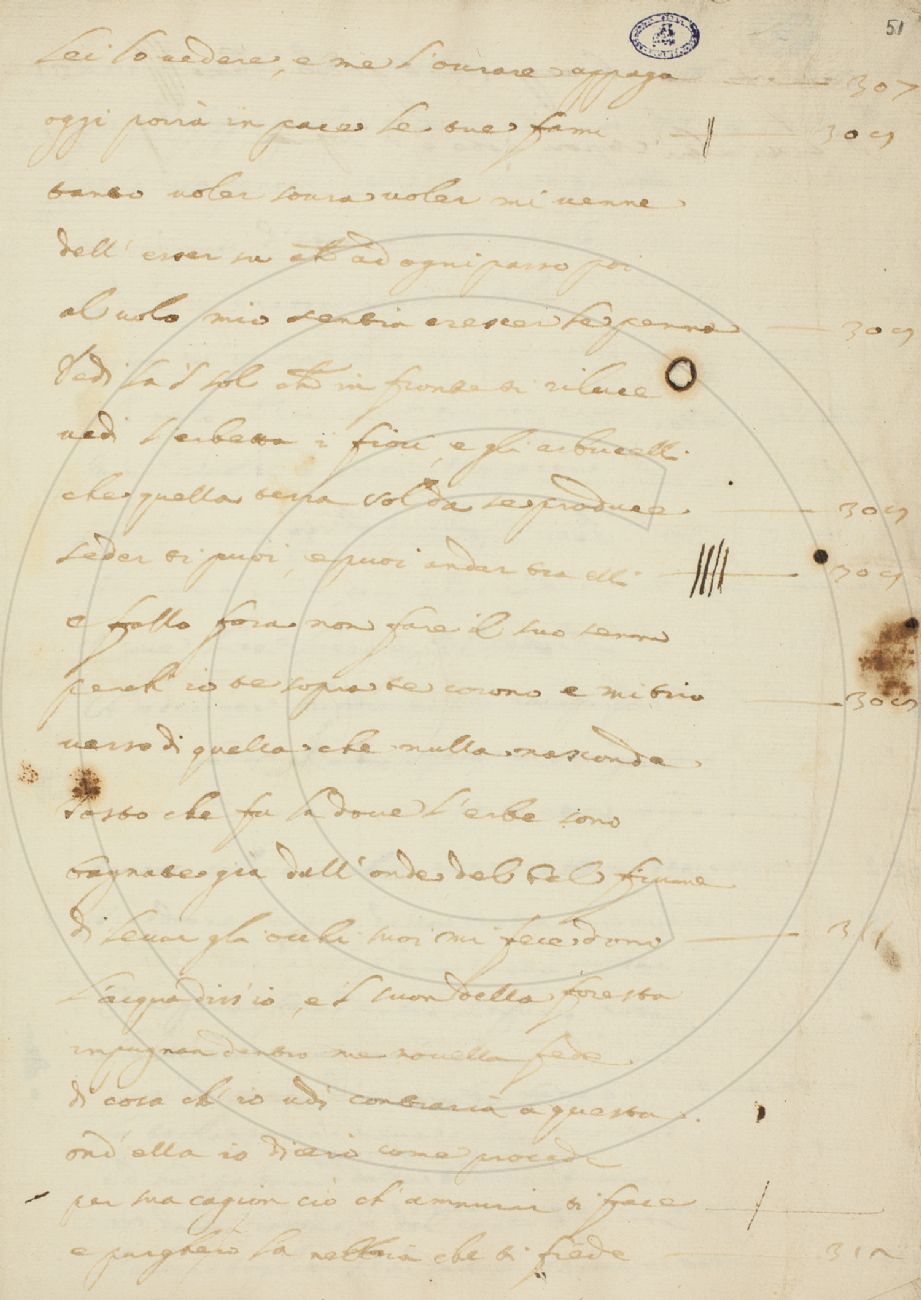 51
Lei lo vedere, e me l'ovrare appaga 307
oggi porrà in pace le tue fami 309
tanto voler sovra voler mi venne
dell'esser su ch'ad ogni passo poi
al volo mio sentia crescer le penne 309
Vedi la 'l sol ch'in fronte ti riluce
vedi l'erbetta i fiori, e gli arbucelli
che quella terra sol da se produce 309
seder ti puoi, e puoi andar tra elli 309
e fallo fora non fare il suo senno
perch'io te sopra te corono e mitrio 309
verso di quella che nulla nasconde
Tosto che fu la dove l'erbe sono
bagnate già dall'onde del bel fiume
di levar gli occhi suoi mi fece dono 311
L'acqua diss'io, e 'l suon della foresta
impugnan dentro me novella fede
di cosa ch'io udi contraria a questa.
ond'ella io dicerò come procede
per sua cagion ciò ch'ammirar ti face
e purgherò la nebbia che ti fiede 312